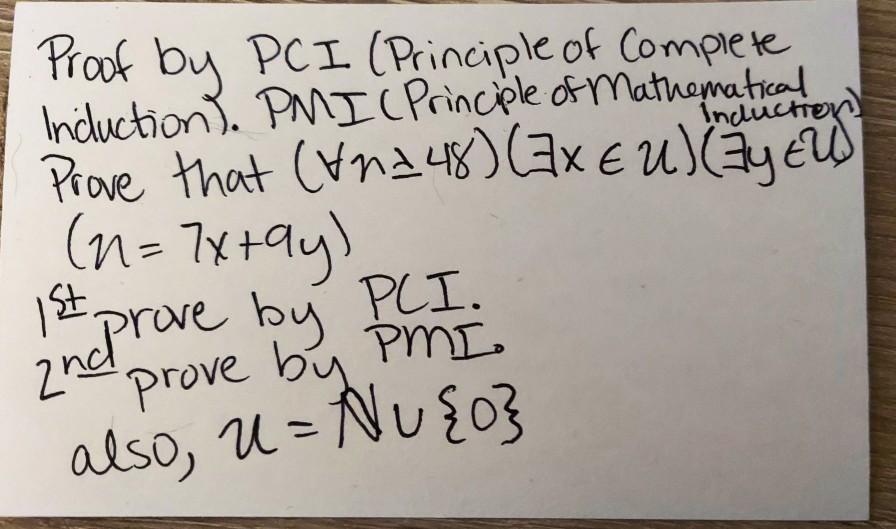 Proof by PCI (Principle of Complete
Induction). PMI (Principle of Mathematical
Induction)
Prove that (∀n≥48)(∃x ∈ U)(∃y ∈ U)
(n = 7x+9y)
1st prove by PCI.
2nd prove by PMI.
also, U = ℕ ∪ {0}